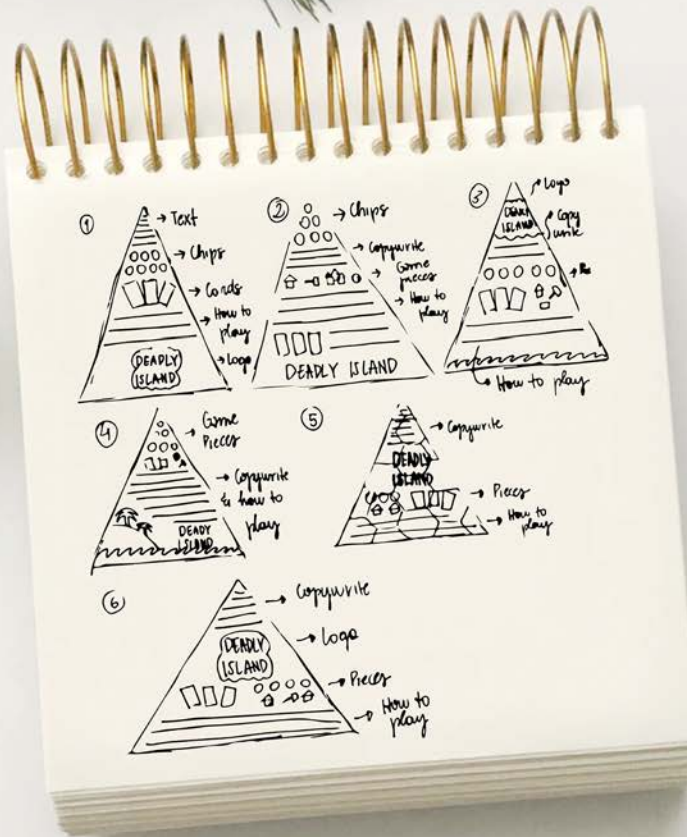 1
Text
Chips
Cards
How to
play
Logo
DEADLY
ISLAND
2
Chips
Copywrite
Game
pieces
How to
play
DEADLY ISLAND
3
Logo
Copy
write
DEADLY
ISLAND
How to play
4
Game
Pieces
Copywrite
& how to
play
DEADY
ISLAND
5
Copywrite
DEADLY
ISLAND
Pieces
How to
play
6
Copywrite
Logo
DEADLY
ISLAND
Pieces
How to
play